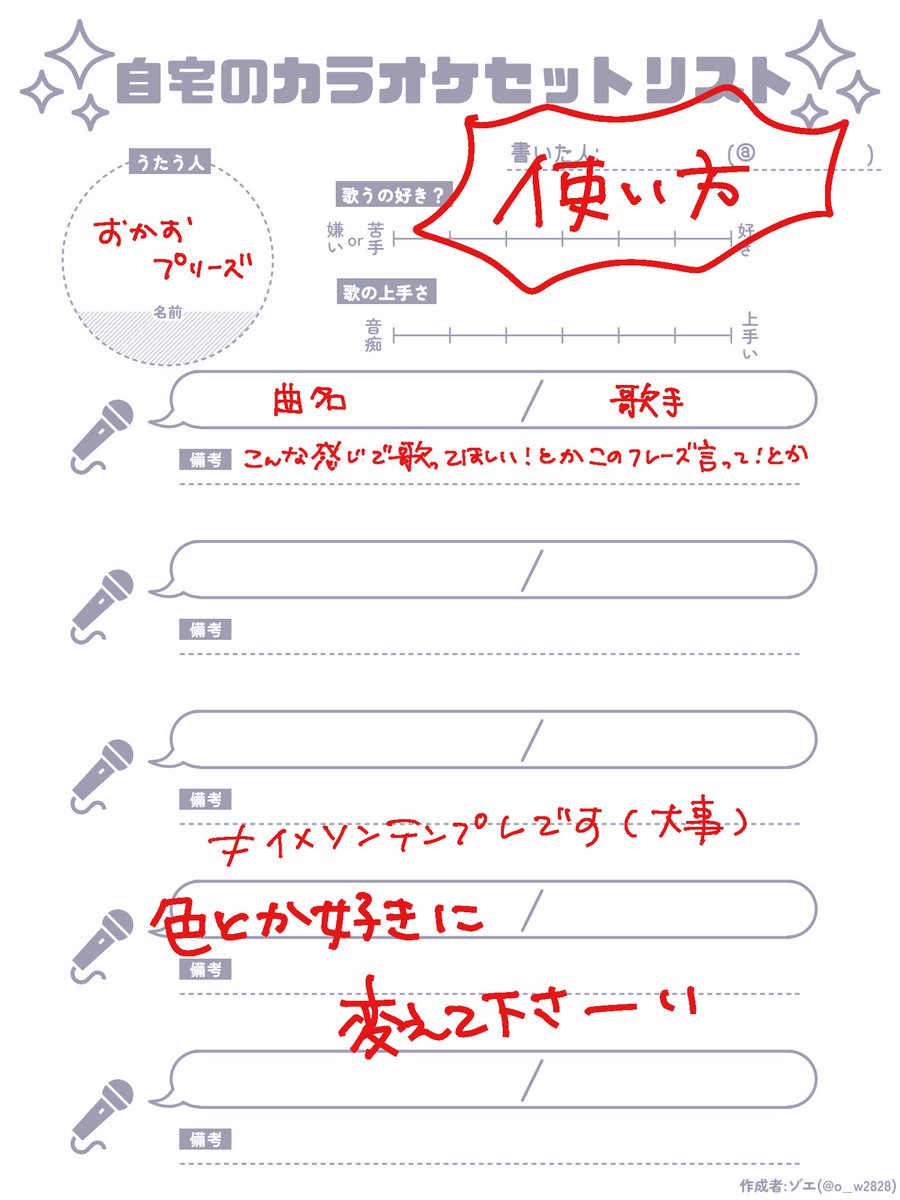 自宅のカラオケセットリスト
うたう人
書いた人: (@ )
使い方
おかお
プリーズ
名前
歌うの好き?
嫌い or 苦手
好き
歌の上手さ
音痴
上手い
曲名 / 歌手
備考 こんな感じで歌ってほしい!とかこのフレーズ言って!とか
/
備考
/
備考
≠イメソンテンプレです(大事)
/
色とか好きに
備考
変えて下さーい
/
備考
作成者:ゾエ(@o_w2828)